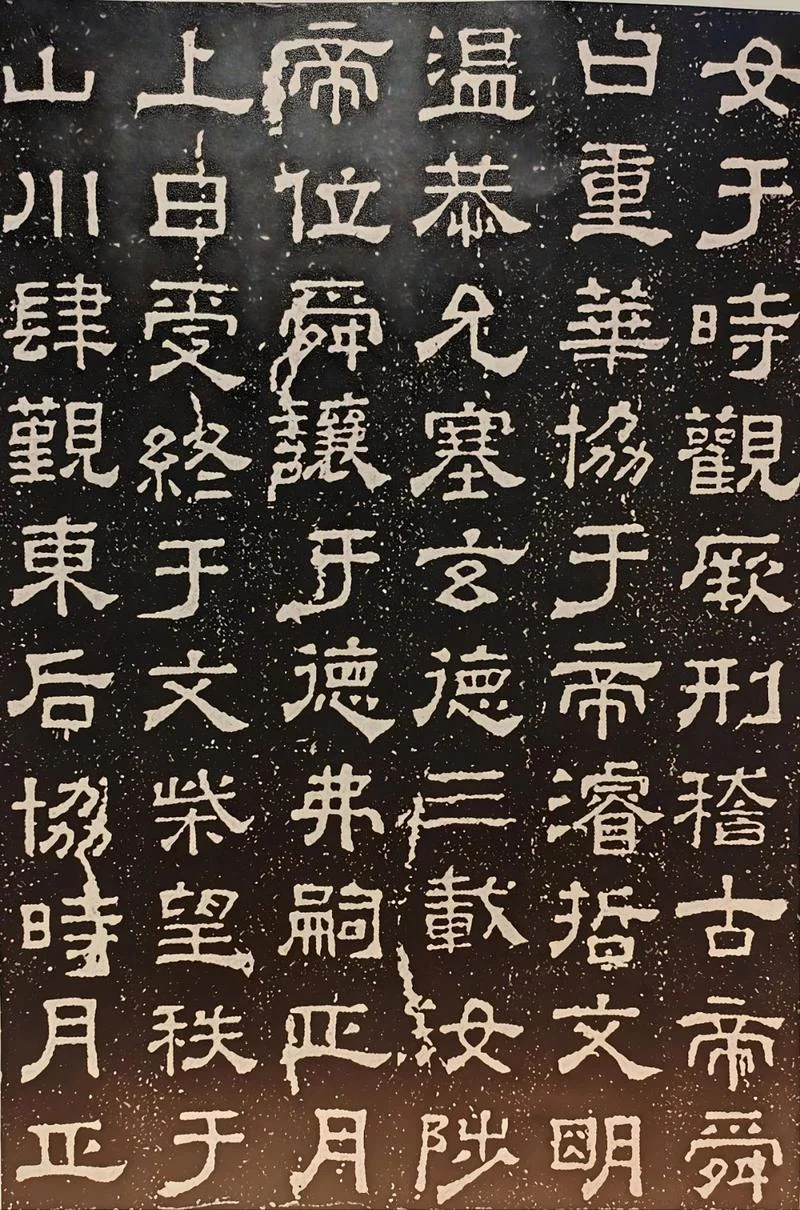 女于時觀厥刑稽古帝舜
曰重華協于帝濬哲文明
温恭允塞玄德三載汝陟
帝位舜讓于德弗嗣正月
上日受終于文柴望秩于
山川肆覲東后協時月正